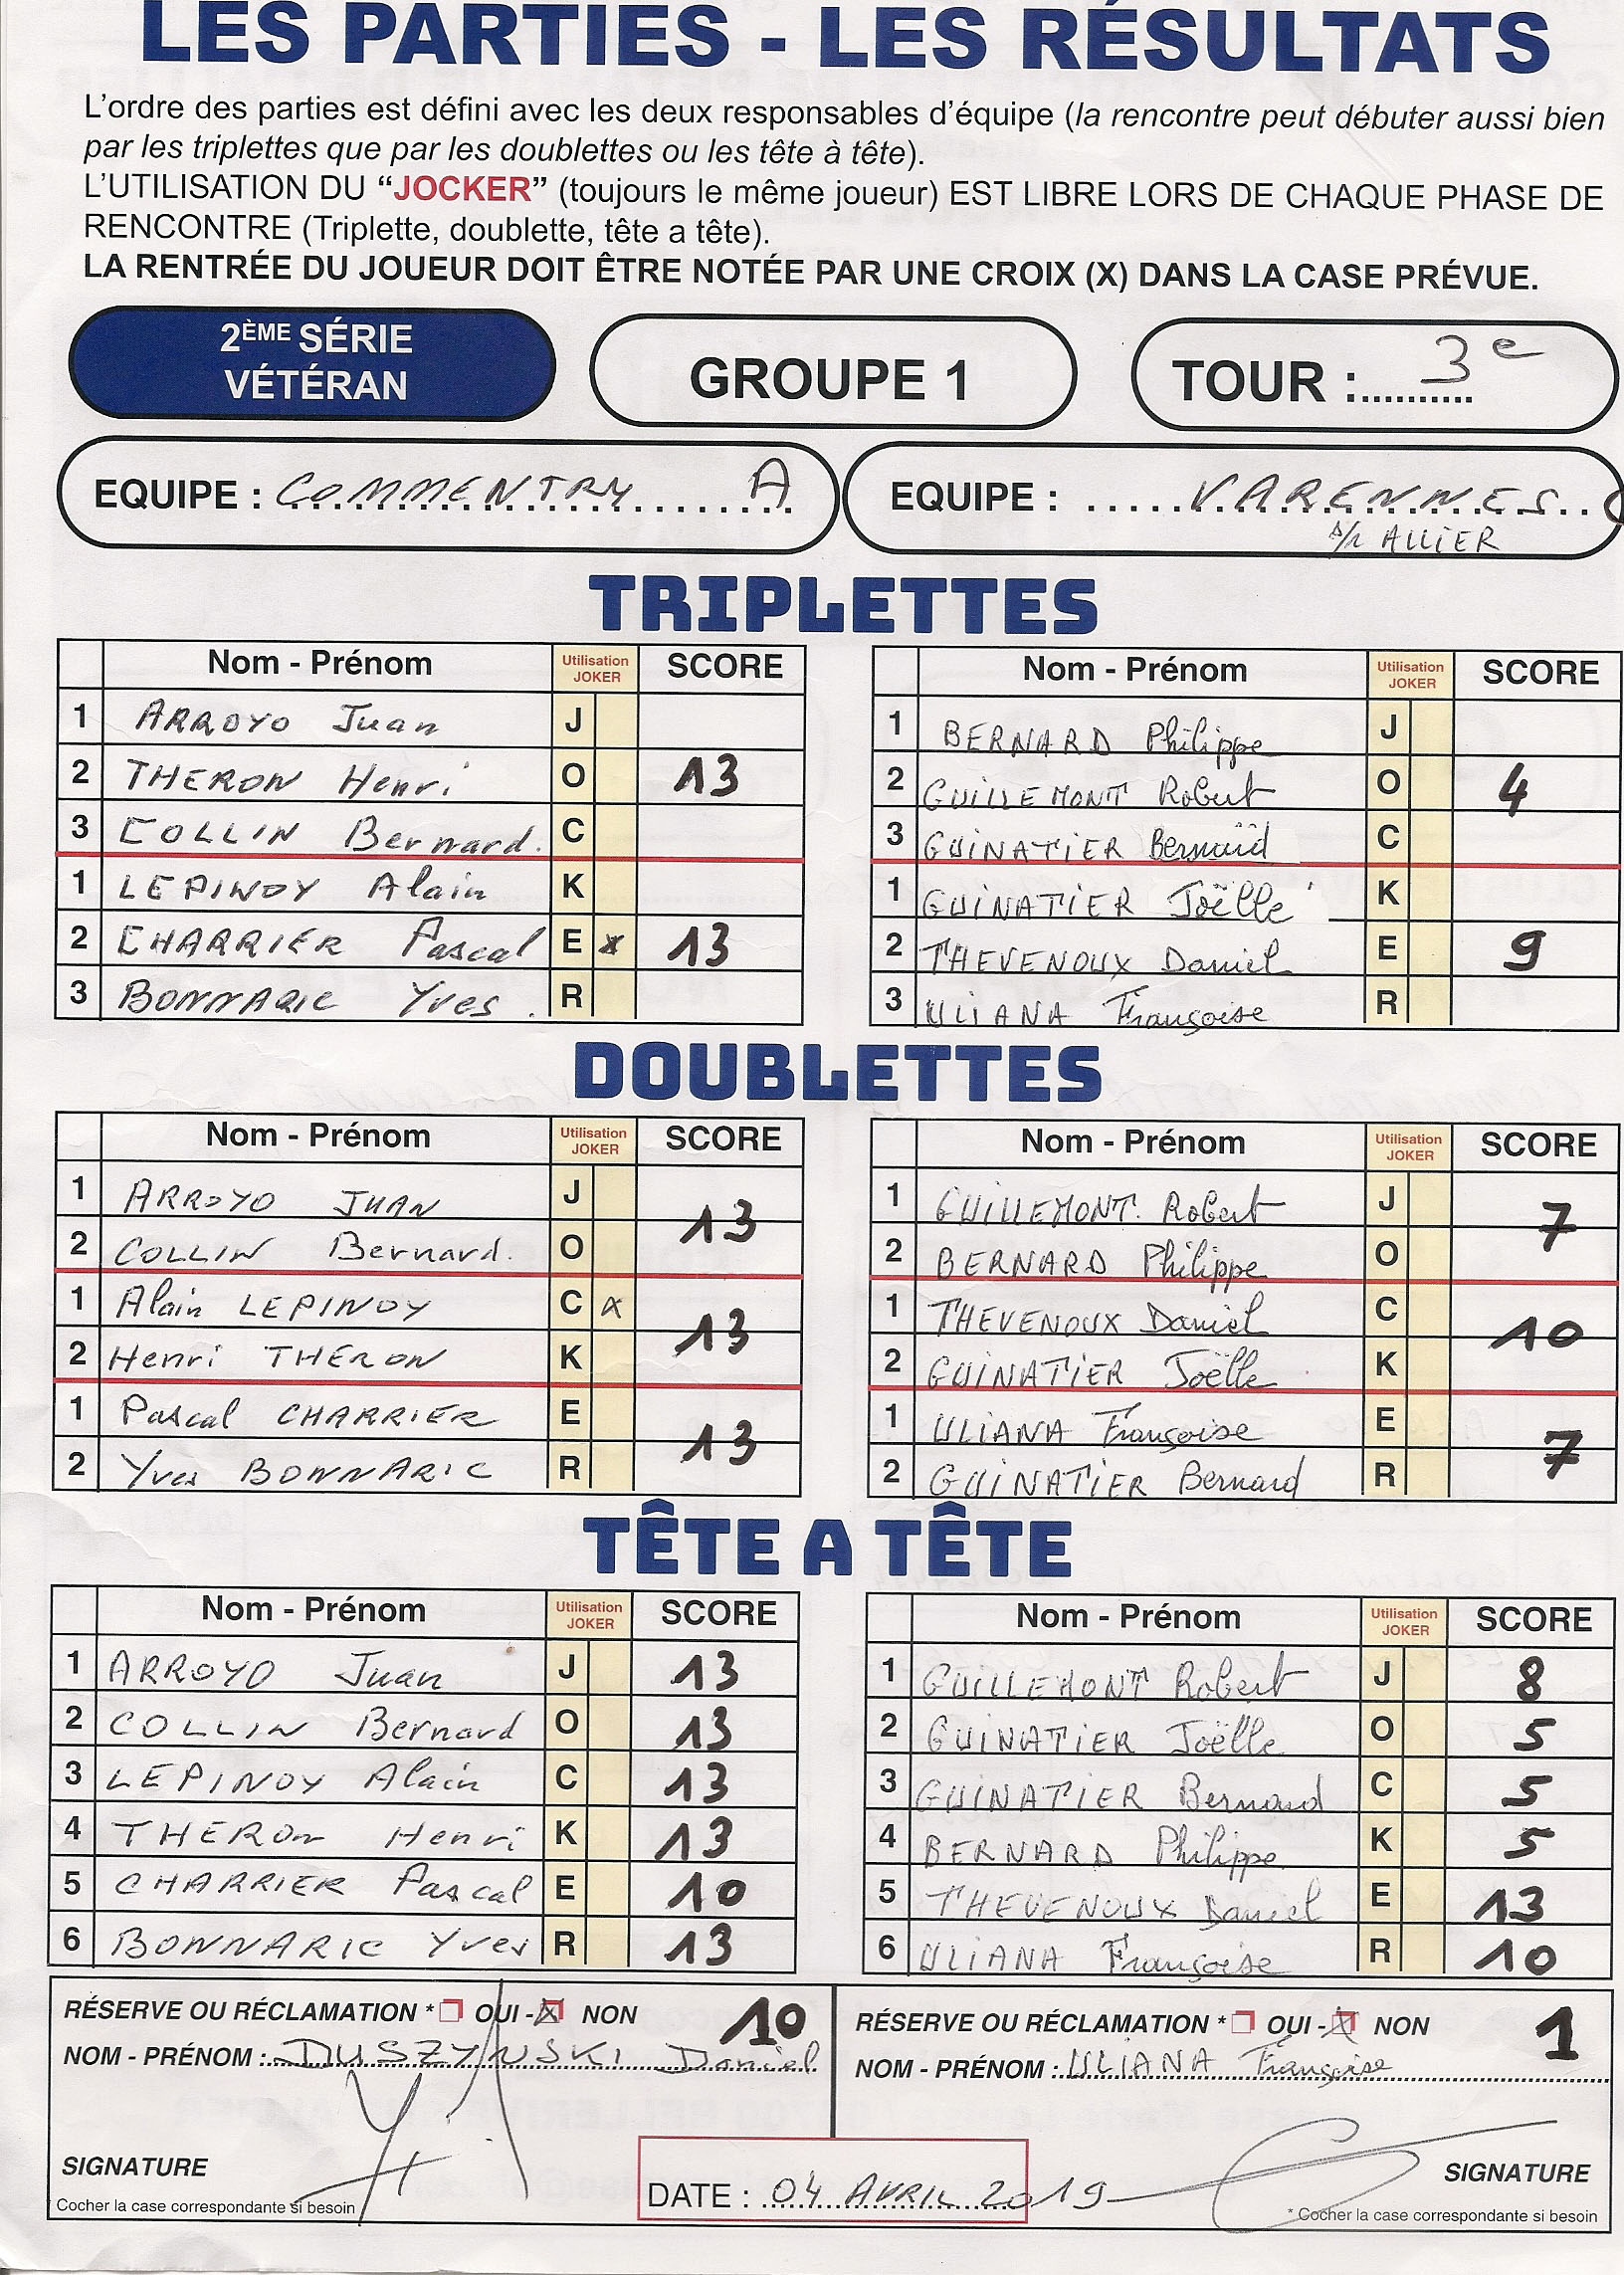 LES PARTIES - LES RÉSULTATS
L'ordre des parties est défini avec les deux responsables d'équipe (la rencontre peut débuter aussi bien
par les triplettes que par les doublettes ou les tête à tête).
L'UTILISATION DU "JOCKER" (toujours le même joueur) EST LIBRE LORS DE CHAQUE PHASE DE
RENCONTRE (Triplette, doublette, tête a tête).
LA RENTRÉE DU JOUEUR DOIT ÊTRE NOTÉE PAR UNE CROIX (X) DANS LA CASE PRÉVUE.
2ÈME SÉRIE
VÉTÉRAN
GROUPE 1
TOUR : 3e
EQUIPE : COMMENTRY A
EQUIPE : VARENNES
s/r ALLIER
TRIPLETTES
Nom - Prénom Utilisation JOKER SCORE Nom - Prénom Utilisation JOKER SCORE
1 ARROYO Juan J 1 BERNARD Philippe J
2 THERON Henri O 13 2 GUILLEMONT Robert O 4
3 COLLIN Bernard. C 3 GUINATIER Bernard C
1 LEPINOY Alain K 1 GUINATIER Joëlle K
2 CHARRIER Pascal E x 13 2 THEVENOUX Daniel E 9
3 BONNARIC Yves. R 3 ULIANA Françoise R
DOUBLETTES
Nom - Prénom Utilisation JOKER SCORE Nom - Prénom Utilisation JOKER SCORE
1 ARROYO JUAN J 13 1 GUILLEMONT. Robert J 7
2 COLLIN Bernard. O 2 BERNARD Philippe O
1 Alain LEPINOY C x 13 1 THEVENOUX Daniel C 10
2 Henri THERON K 2 GUINATIER Joëlle K
1 Pascal CHARRIER E 13 1 ULIANA Françoise E 7
2 Yves BONNARIC R 2 GUINATIER Bernard R
TÊTE A TÊTE
Nom - Prénom Utilisation JOKER SCORE Nom - Prénom Utilisation JOKER SCORE
1 ARROYO Juan J 13 1 GUILLEMONT Robert J 8
2 COLLIN Bernard O 13 2 GUINATIER Joëlle O 5
3 LEPINOY Alain C 13 3 GUINATIER Bernard C 5
4 THERON Henri K 13 4 BERNARD Philippe K 5
5 CHARRIER Pascal E 10 5 THEVENOUX Daniel E 13
6 BONNARIC Yves R 13 6 ULIANA Françoise R 10
RÉSERVE OU RÉCLAMATION * OUI - X NON 10 RÉSERVE OU RÉCLAMATION * OUI - X NON 1
NOM - PRÉNOM : DUSZYNSKI Daniel NOM - PRÉNOM : ULIANA Françoise
SIGNATURE SIGNATURE
DATE : 04 AVRIL 2019
Cocher la case correspondante si besoin * Cocher la case correspondante si besoin